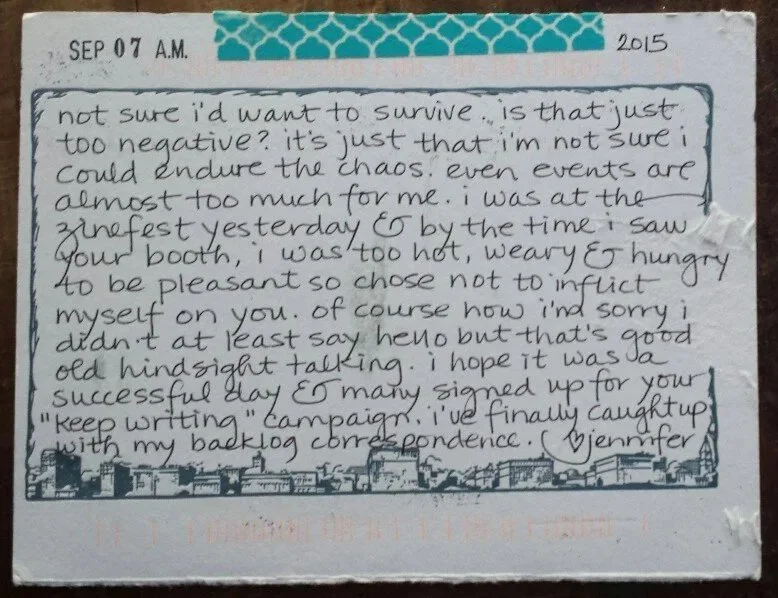 SEP 07 A.M. 2015
not sure i'd want to survive. is that just
too negative? it's just that i'm not sure i
could endure the chaos. even events are
almost too much for me. i was at the
zinefest yesterday & by the time i saw
your booth, i was too hot, weary & hungry
to be pleasant so chose not to inflict
myself on you. of course now i'm sorry i
didn't at least say hello but that's good
old hindsight talking. i hope it was a
successful day & many signed up for your
"keep writing" campaign. i've finally caught up
with my backlog correspondence. ♡jennifer